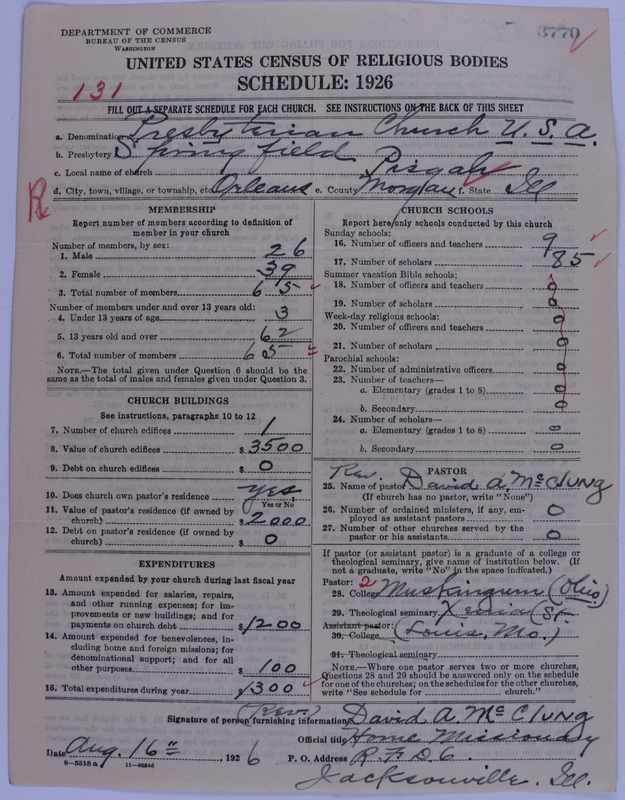 DEPARTMENT OF COMMERCE
BUREAU OF THE CENSUS
WASHINGTON
3770
UNITED STATES CENSUS OF RELIGIOUS BODIES
SCHEDULE: 1926
131
FILL OUT A SEPARATE SCHEDULE FOR EACH CHURCH. SEE INSTRUCTIONS ON THE BACK OF THIS SHEET
a. Denomination Presbyterian Church U. S. A.
b. Presbytery Springfield
c. Local name of church Pisgah
d. City, town, village, or township, etc. Orleans e. County Morgan f. State Ill
R
MEMBERSHIP
Report number of members according to definition of
member in your church
Number of members, by sex:
1. Male 26
2. Female 39
3. Total number of members 65
Number of members under and over 13 years old:
4. Under 13 years of age 3
5. 13 years old and over 62
6. Total number of members 65
NOTE.—The total given under Question 6 should be
same as the total of males and females given under Question 3.
CHURCH BUILDINGS
See instructions, paragraphs 10 to 12
7. Number of church edifices 1
8. Value of church edifices $3500
9. Debt on church edifices $ 0
10. Does church own pastor's residence yes
Yes or No
11. Value of pastor's residence (if owned by
church) $2000
12. Debt on pastor's residence (if owned by
church) $ 0
EXPENDITURES
Amount expended by your church during last fiscal year
13. Amount expended for salaries, repairs,
and other running expenses; for im-
provements or new buildings; and for
payments on church debt $1200
14. Amount expended for benevolences, in-
cluding home and foreign missions; for
denominational support; and for all
other purposes $ 100
15. Total expenditures during year 1300
CHURCH SCHOOLS
Report here only schools conducted by this church
Sunday schools:
16. Number of officers and teachers 9
17. Number of scholars 85
Summer vacation Bible schools:
18. Number of officers and teachers 0
19. Number of scholars 0
Week-day religious schools:
20. Number of officers and teachers 0
21. Number of scholars 0
Parochial schools:
22. Number of administrative officers 0
23. Number of teachers—
a. Elementary (grades 1 to 8) 0
b. Secondary 0
24. Number of scholars—
a. Elementary (grades 1 to 8) 0
b. Secondary 0
PASTOR
25. Name of pastor Rev. David A. McClung
(If church has no pastor, write "None")
26. Number of ordained ministers, if any, em-
ployed as assistant pastors 0
27. Number of other churches served by the
pastor or his assistants 0
If pastor (or assistant pastor) is a graduate of a college or
theological seminary, give name of institution below. (If
not a graduate, write "No" in the space indicated.)
Pastor: 2
28. College Muskingum (Ohio)
29. Theological seminary Xenia (St.
Assistant pastor:
30. College Louis, Mo.)
31. Theological seminary
NOTE.—Where one pastor serves two or more churches,
Questions 28 and 29 should be answered only on the schedule
for one of the churches; on the schedules for the other churches,
write "See schedule for church."
Signature of person furnishing information (Rev.) David A. McClung
Official title Home Missionary
Date Aug. 16th, 1926 P. O. Address R. F. D. 6.
8—5518 a
Jacksonville, Ill.